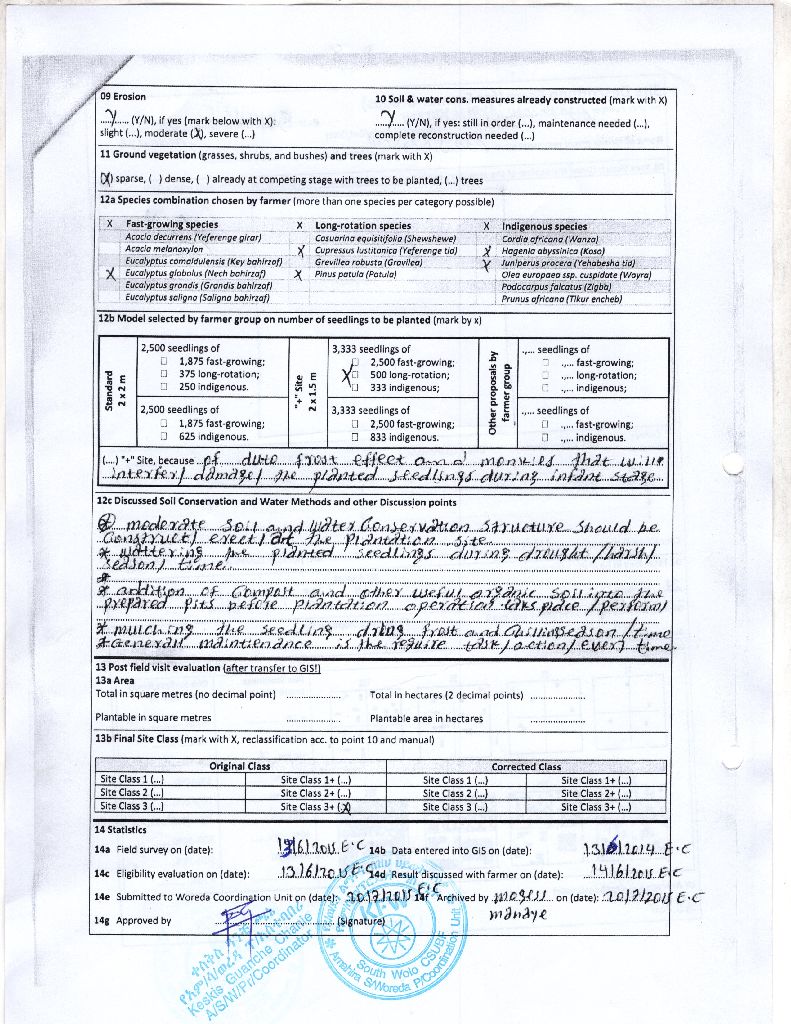 09 Erosion
10 Soil & water cons. measures already constructed (mark with X)
...Y... (Y/N), if yes (mark below with X):
...Y... (Y/N), if yes: still in order (...), maintenance needed (...),
slight (...), moderate (X), severe (...)
complete reconstruction needed (...)
11 Ground vegetation (grasses, shrubs, and bushes) and trees (mark with X)
(X) sparse, ( ) dense, ( ) already at competing stage with trees to be planted, (...) trees
12a Species combination chosen by farmer (more than one species per category possible)
X Fast-growing species X Long-rotation species X Indigenous species
Acacia decurrens (Yeferenge girar) Casuarina equisitifolia (Shewshewe) Cordia africana (Wanza)
Acacia melanoxylon X Cupressus lustitanica (Yeferenge tid) X Hagenia abyssinica (Koso)
Eucalyptus camaldulensis (Key bahirzaf) Grevillea robusta (Gravilea) X Juniperus procera (Yehabesha tid)
X Eucalyptus globolus (Nech bahirzaf) X Pinus patula (Patula) Olea europaea ssp. cuspidate (Woyra)
Eucalyptus grandis (Grandis bahirzaf) Podocarpus falcatus (Zigba)
Eucalyptus saligna (Saligna bahirzaf) Prunus africana (Tikur encheb)
12b Model selected by farmer group on number of seedlings to be planted (mark by x)
Standard 2 x 2 m
2,500 seedlings of
☐ 1,875 fast-growing;
☐ 375 long-rotation;
☐ 250 indigenous.
2,500 seedlings of
☐ 1,875 fast-growing;
☐ 625 indigenous.
"+" Site 2 x 1.5 m
3,333 seedlings of
☐ 2,500 fast-growing;
X ☐ 500 long-rotation;
☐ 333 indigenous;
3,333 seedlings of
☐ 2,500 fast-growing;
☐ 833 indigenous.
Other proposals by farmer group
.,... seedlings of
☐ .,... fast-growing;
☐ .,... long-rotation;
☐ .,... indigenous;
.,... seedlings of
☐ .,... fast-growing;
☐ .,... indigenous.
(....) "+" Site, because of duto frost effect and monkies that will
interfer/ damage/ the planted seedlings during infant stage
12c Discussed Soil Conservation and Water Methods and other Discussion points
moderate Soil and Water Conservation structure should be
Construct/ erect/ at the plantation site.
* waltering the planted seedlings during drought /harsh/
season/ time.
* addition of Compost and other useful organic soil into the
prepared pits before plantation operation taks place /perform/
* mulching the seedling dring frost and Chilling season / time
* Generall maintienance is the require task/ action/ every time
13 Post field visit evaluation (after transfer to GIS!)
13a Area
Total in square metres (no decimal point) .................. Total in hectares (2 decimal points) ..................
Plantable in square metres .................. Plantable area in hectares ..................
13b Final Site Class (mark with X, reclassification acc. to point 10 and manual)
Original Class Corrected Class
Site Class 1 (...) Site Class 1+ (...) Site Class 1 (...) Site Class 1+ (...)
Site Class 2 (...) Site Class 2+ (...) Site Class 2 (...) Site Class 2+ (...)
Site Class 3 (...) Site Class 3+ (X) Site Class 3 (...) Site Class 3+ (...)
14 Statistics
14a Field survey on (date): 13/6/2015 E.C 14b Data entered into GIS on (date): 13/6/2014 E.C
14c Eligibility evaluation on (date): 13/6/2015 E.C 14d Result discussed with farmer on (date): 14/6/2015 E.C
14e Submitted to Woreda Coordination Unit on (date): 20/7/2015 E.C 14f Archived by mogess manaye on (date): 20/7/2015 E.C
14g Approved by .................. (Signature)
Keskis Guanche Chanie
A/S/W/P/Coordinator
South Wolo CSUBF
Amahra S/Woreda P/Coordination Unit